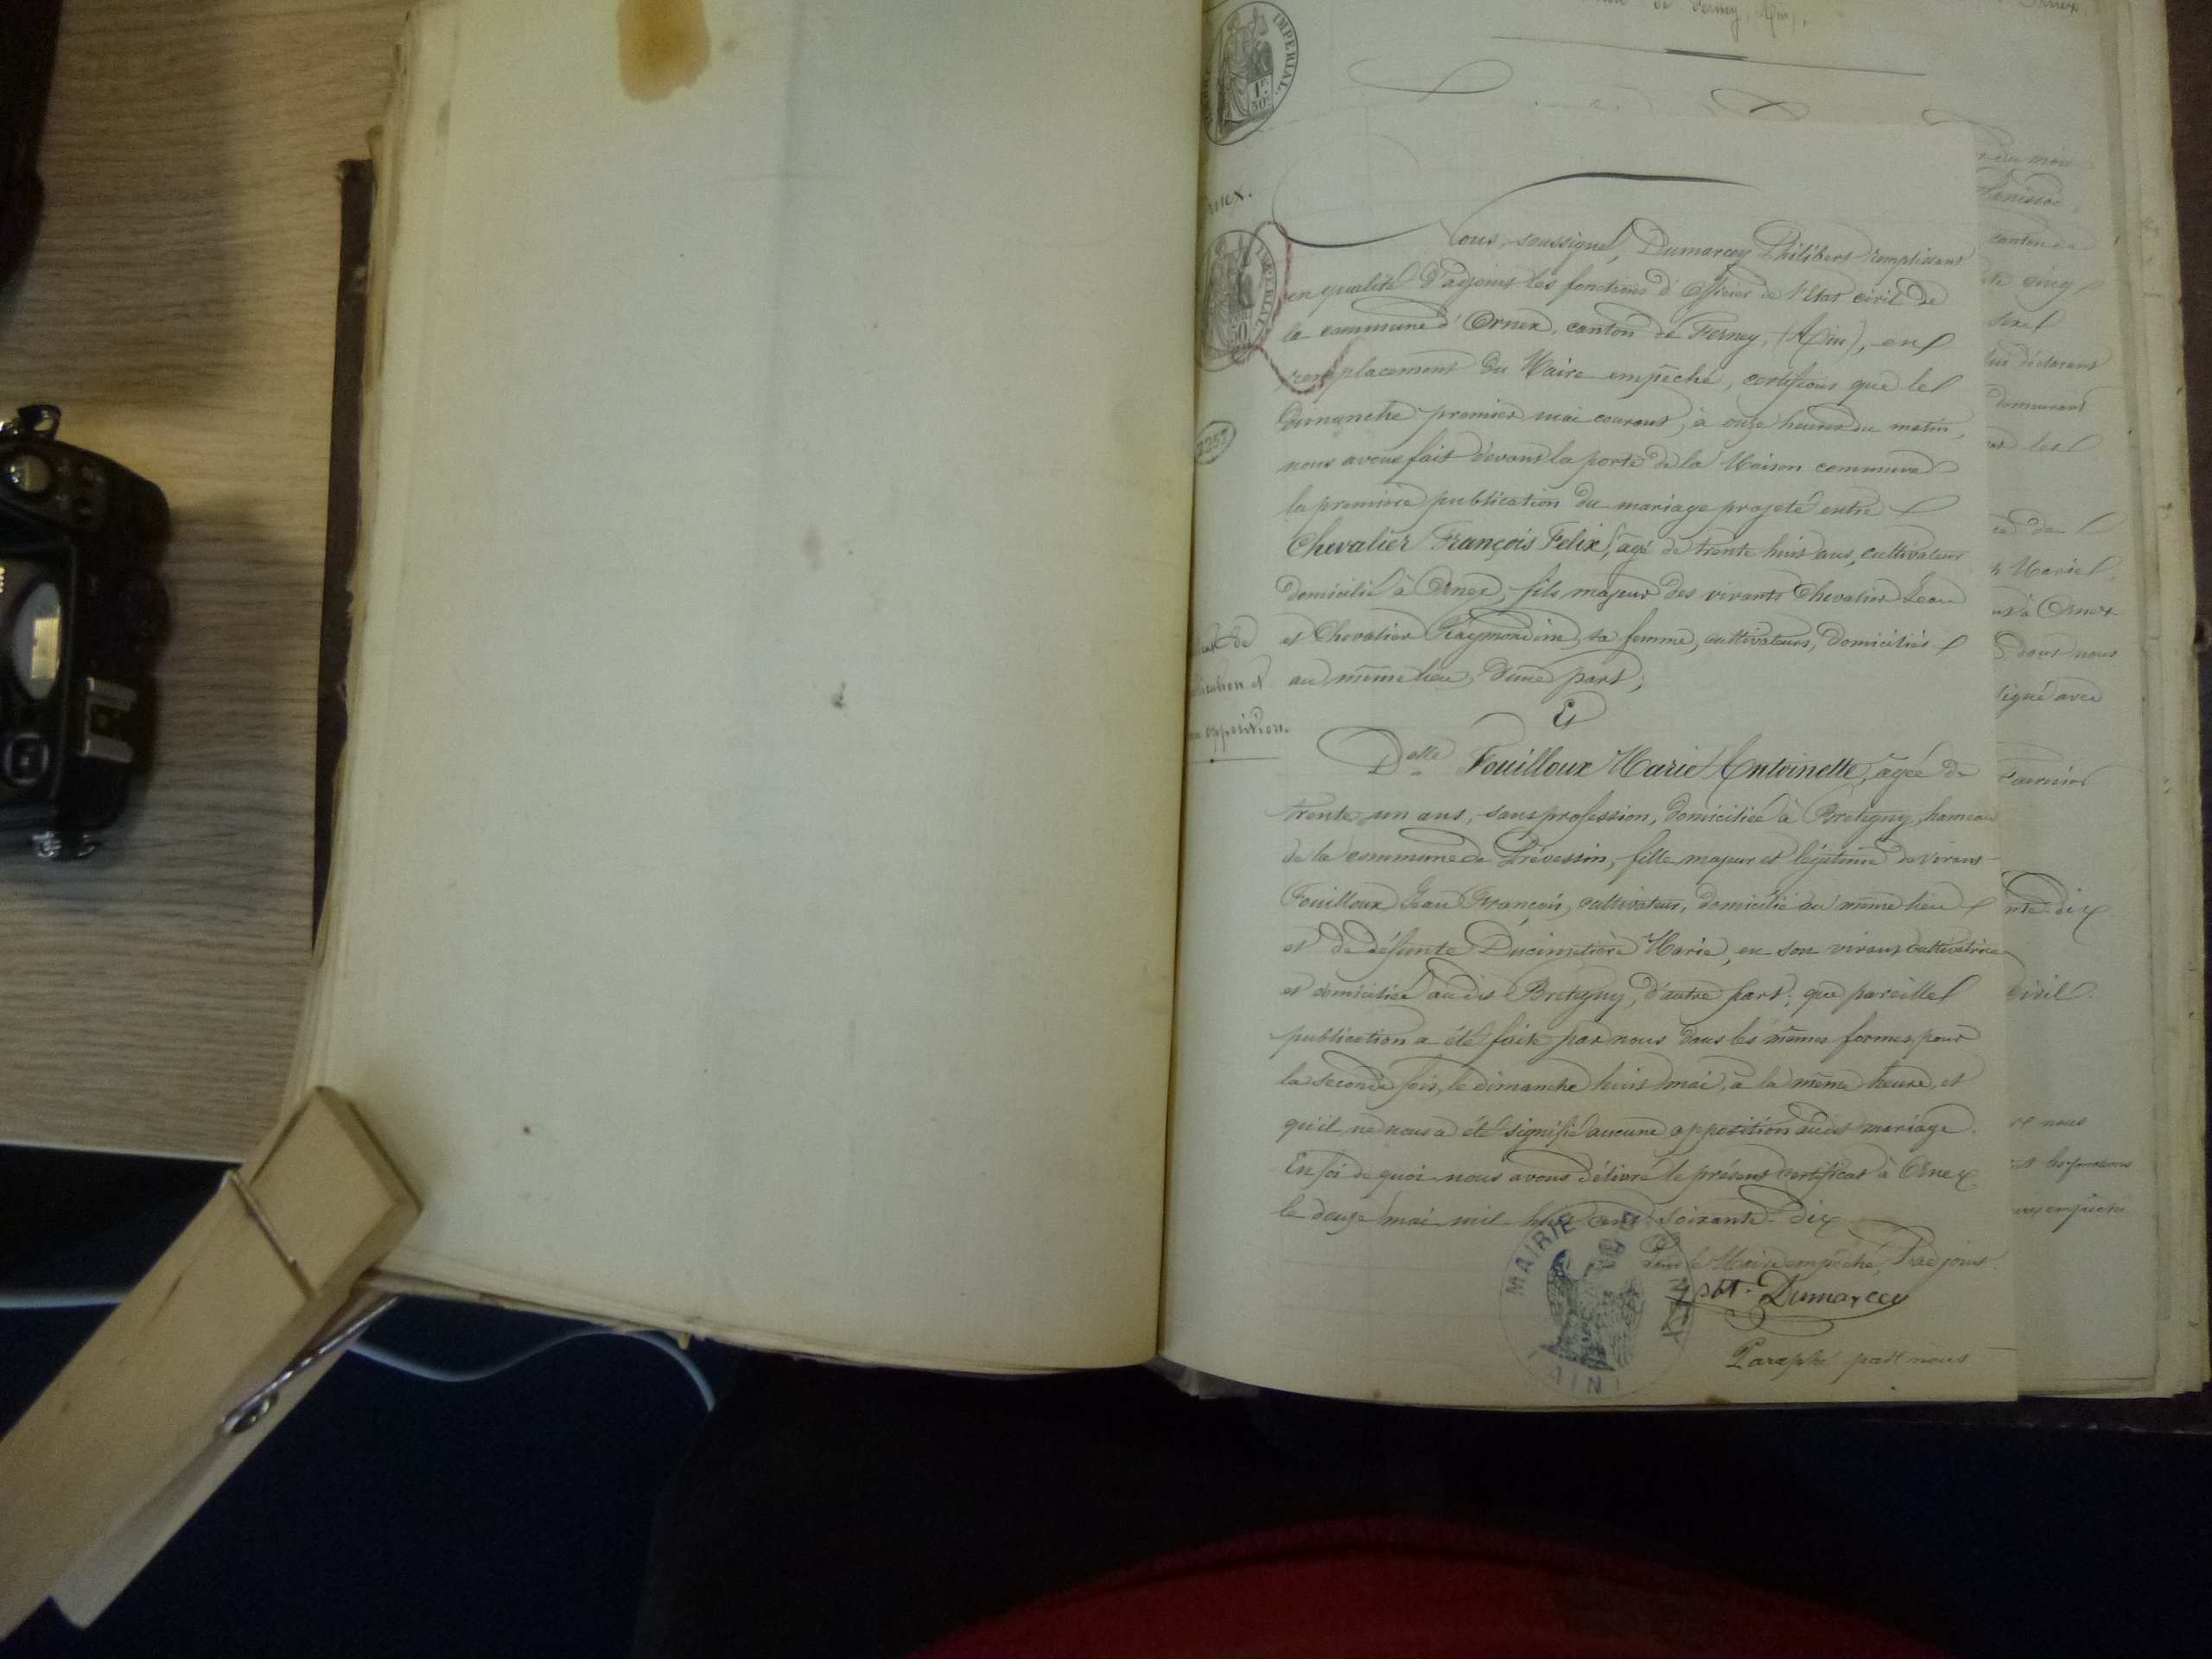 de Ferney, Ain,
Ornex,
IMPERIAL.
1F.
50c
rnex.
IMPERIAL.
50
2257
Nous, soussigné, Dumarcey Philibert remplissant
en qualité d'adjoint les fonctions d'officier de l'Etat civil de
la commune d'Ornex, canton de Ferney, (Ain), en
remplacement du Maire empêché, certifions que le
Dimanche premier mai courant, à onze heures du matin,
nous avons fait devant la porte de la Maison commune
la première publication du mariage projeté entre
Chevalier François Felix, âgé de trente huit ans, cultivateur
domicilié à Ornex, fils majeur des vivants Chevalier Jean
et Chevalier Raymondine, sa femme, cultivateurs, domiciliés
au même lieu, d'une part;
Et
Delle Fouilloux Marie Antoinette, âgée de
trente un ans, sans profession, domiciliée à Bretigny, hameau
de la commune de Prévessin, fille majeur et légitime de vivant
Fouilloux Jean François, cultivateur, domicilié au même lieu
et de défunte Ducimetière Marie, en son vivant cultivatrice
et domiciliée audit Bretigny, d'autre part; que pareille
publication a été faite par nous dans les mêmes formes, pour
la seconde fois, le dimanche huit mai, à la même heure, et
qu'il ne nous a été signifié aucune opposition audit mariage.
En foi de quoi nous avons délivré le présent certificat à Ornex
le douze mai mil huit cent soixante-dix
Pour le Maire empêché, l'adjoint.
pht. Dumarcey
Paraphé par nous
MAIRIE D'ORNEX
AIN
cat de
blication et
non opposition.
du mois
canton de
te cinq
lui déclarant
demeurant
les
ce de
Marie
à Ornex
dont nous
signé avec
Fournier
nte-dix
civil.
nous
les fonctions
empêché